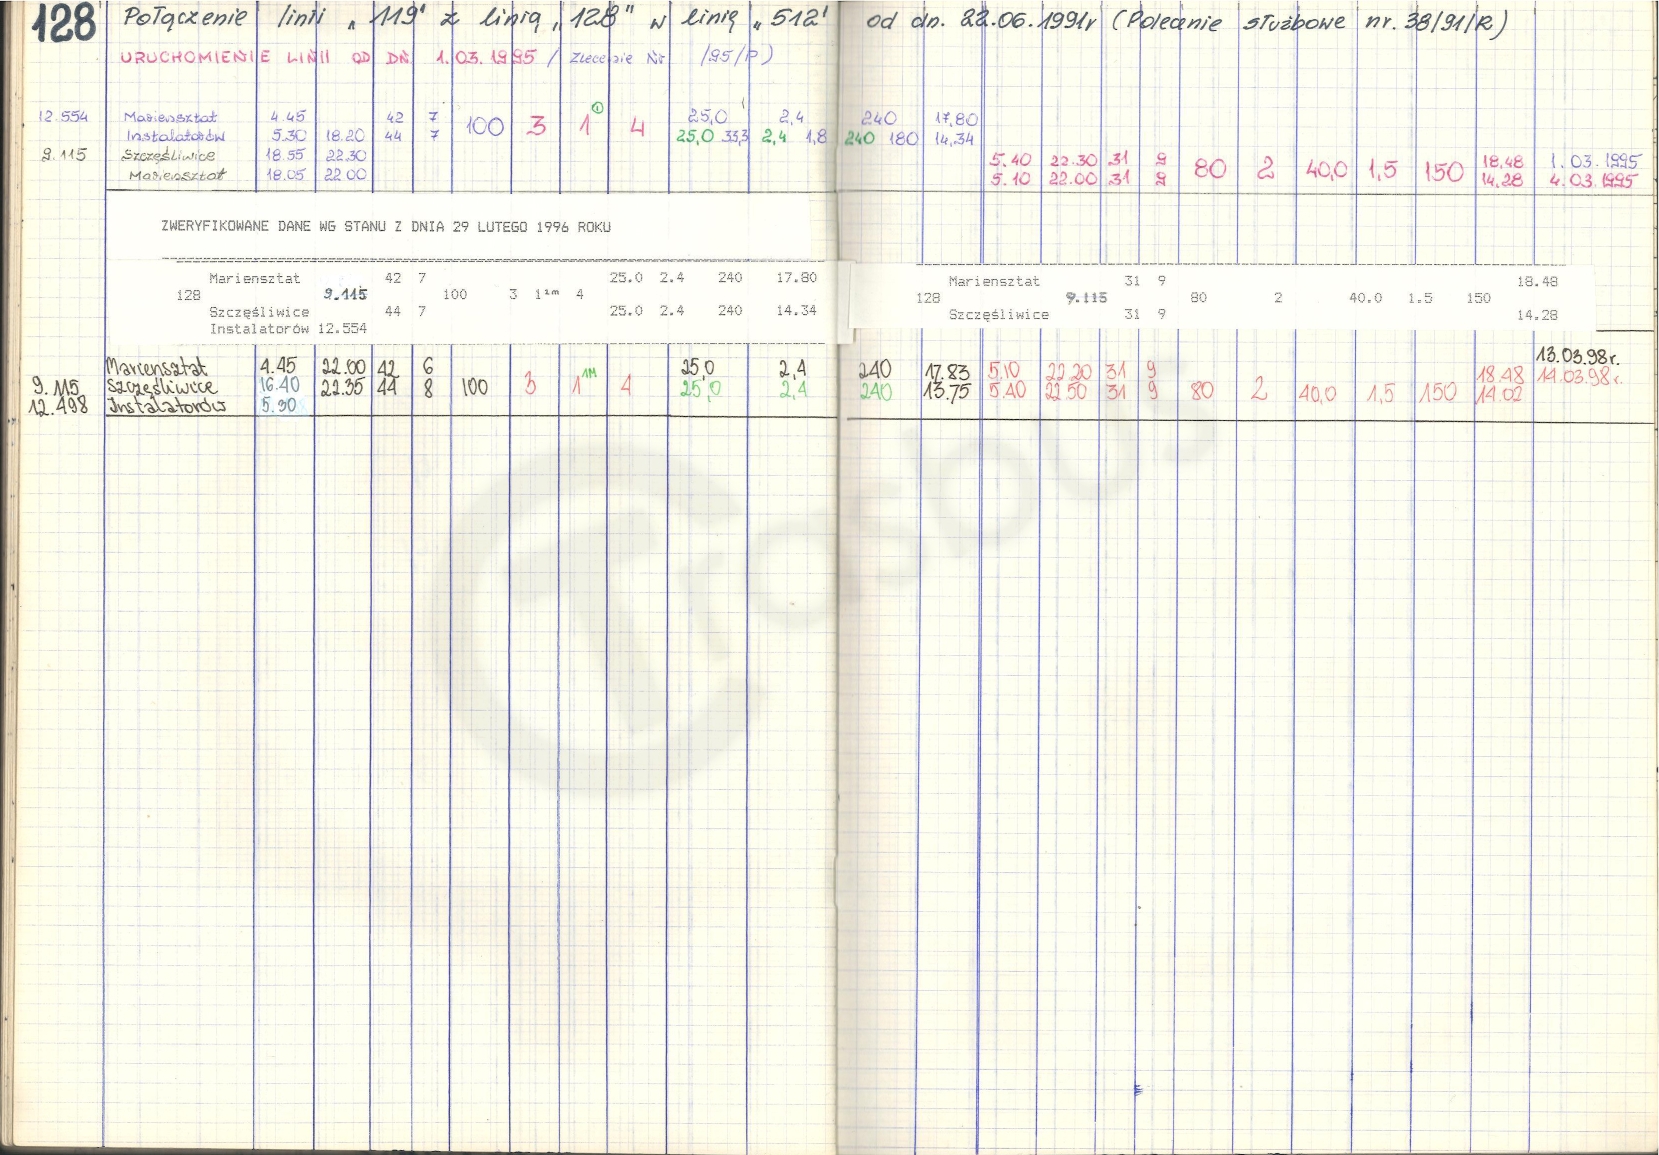 128 Połączenie linii „119" z linią „128" w linię „512" od dn. 22.06.1991r (Polecenie służbowe nr. 38/91/R)
URUCHOMIENIE LINII OD DN 1.03.1995 / Zlecenie Nr /95/P)
12.554 Mariensztat 4.45 42 7 100 3 1 ① 4 25,0 2,4 240 17,80
Instalatorów 5.30 18.20 44 7 25,0 33,3 2,4 1,8 240 180 14,34
9.115 Szczęśliwice 18.55 22.30 5.40 22.30 31 9 80 2 40,0 1,5 150 18,48 1.03.1995
Mariensztat 18.05 22 00 5.10 22.00 31 9 14,28 4.03.1995
ZWERYFIKOWANE DANE WG STANU Z DNIA 29 LUTEGO 1996 ROKU
Mariensztat 42 7 25.0 2.4 240 17.80 Mariensztat 31 9 18.48
128 9.115 100 3 1²ᵐ 4 128 9.115 80 2 40.0 1.5 150
Szczęśliwice 44 7 25.0 2.4 240 14.34 Szczęśliwice 31 9 14.28
Instalatorów 12.554
13.03.98r.
Mariensztat 4.45 22.00 42 6 25,0 2,4 240 17.83 5.10 22.20 31 9 18.48 14.03.98r.
9.115 Szczęśliwice 16.40 22.35 44 8 100 3 1 1M 4 25,0 2,4 240 13.75 5.40 22.50 31 9 80 2 40,0 1,5 150 14.02
12.498 Instalatorów 5.30
Trasbus